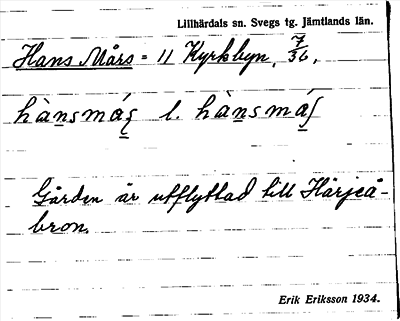 Lillhärdals sn. Svegs tg. Jämtlands län.
Hans Mårs = 11 Kyrkbyn, 7/36,
l.
Gården är utflyttad till Härjeå-
bron.
Erik Eriksson 1934.